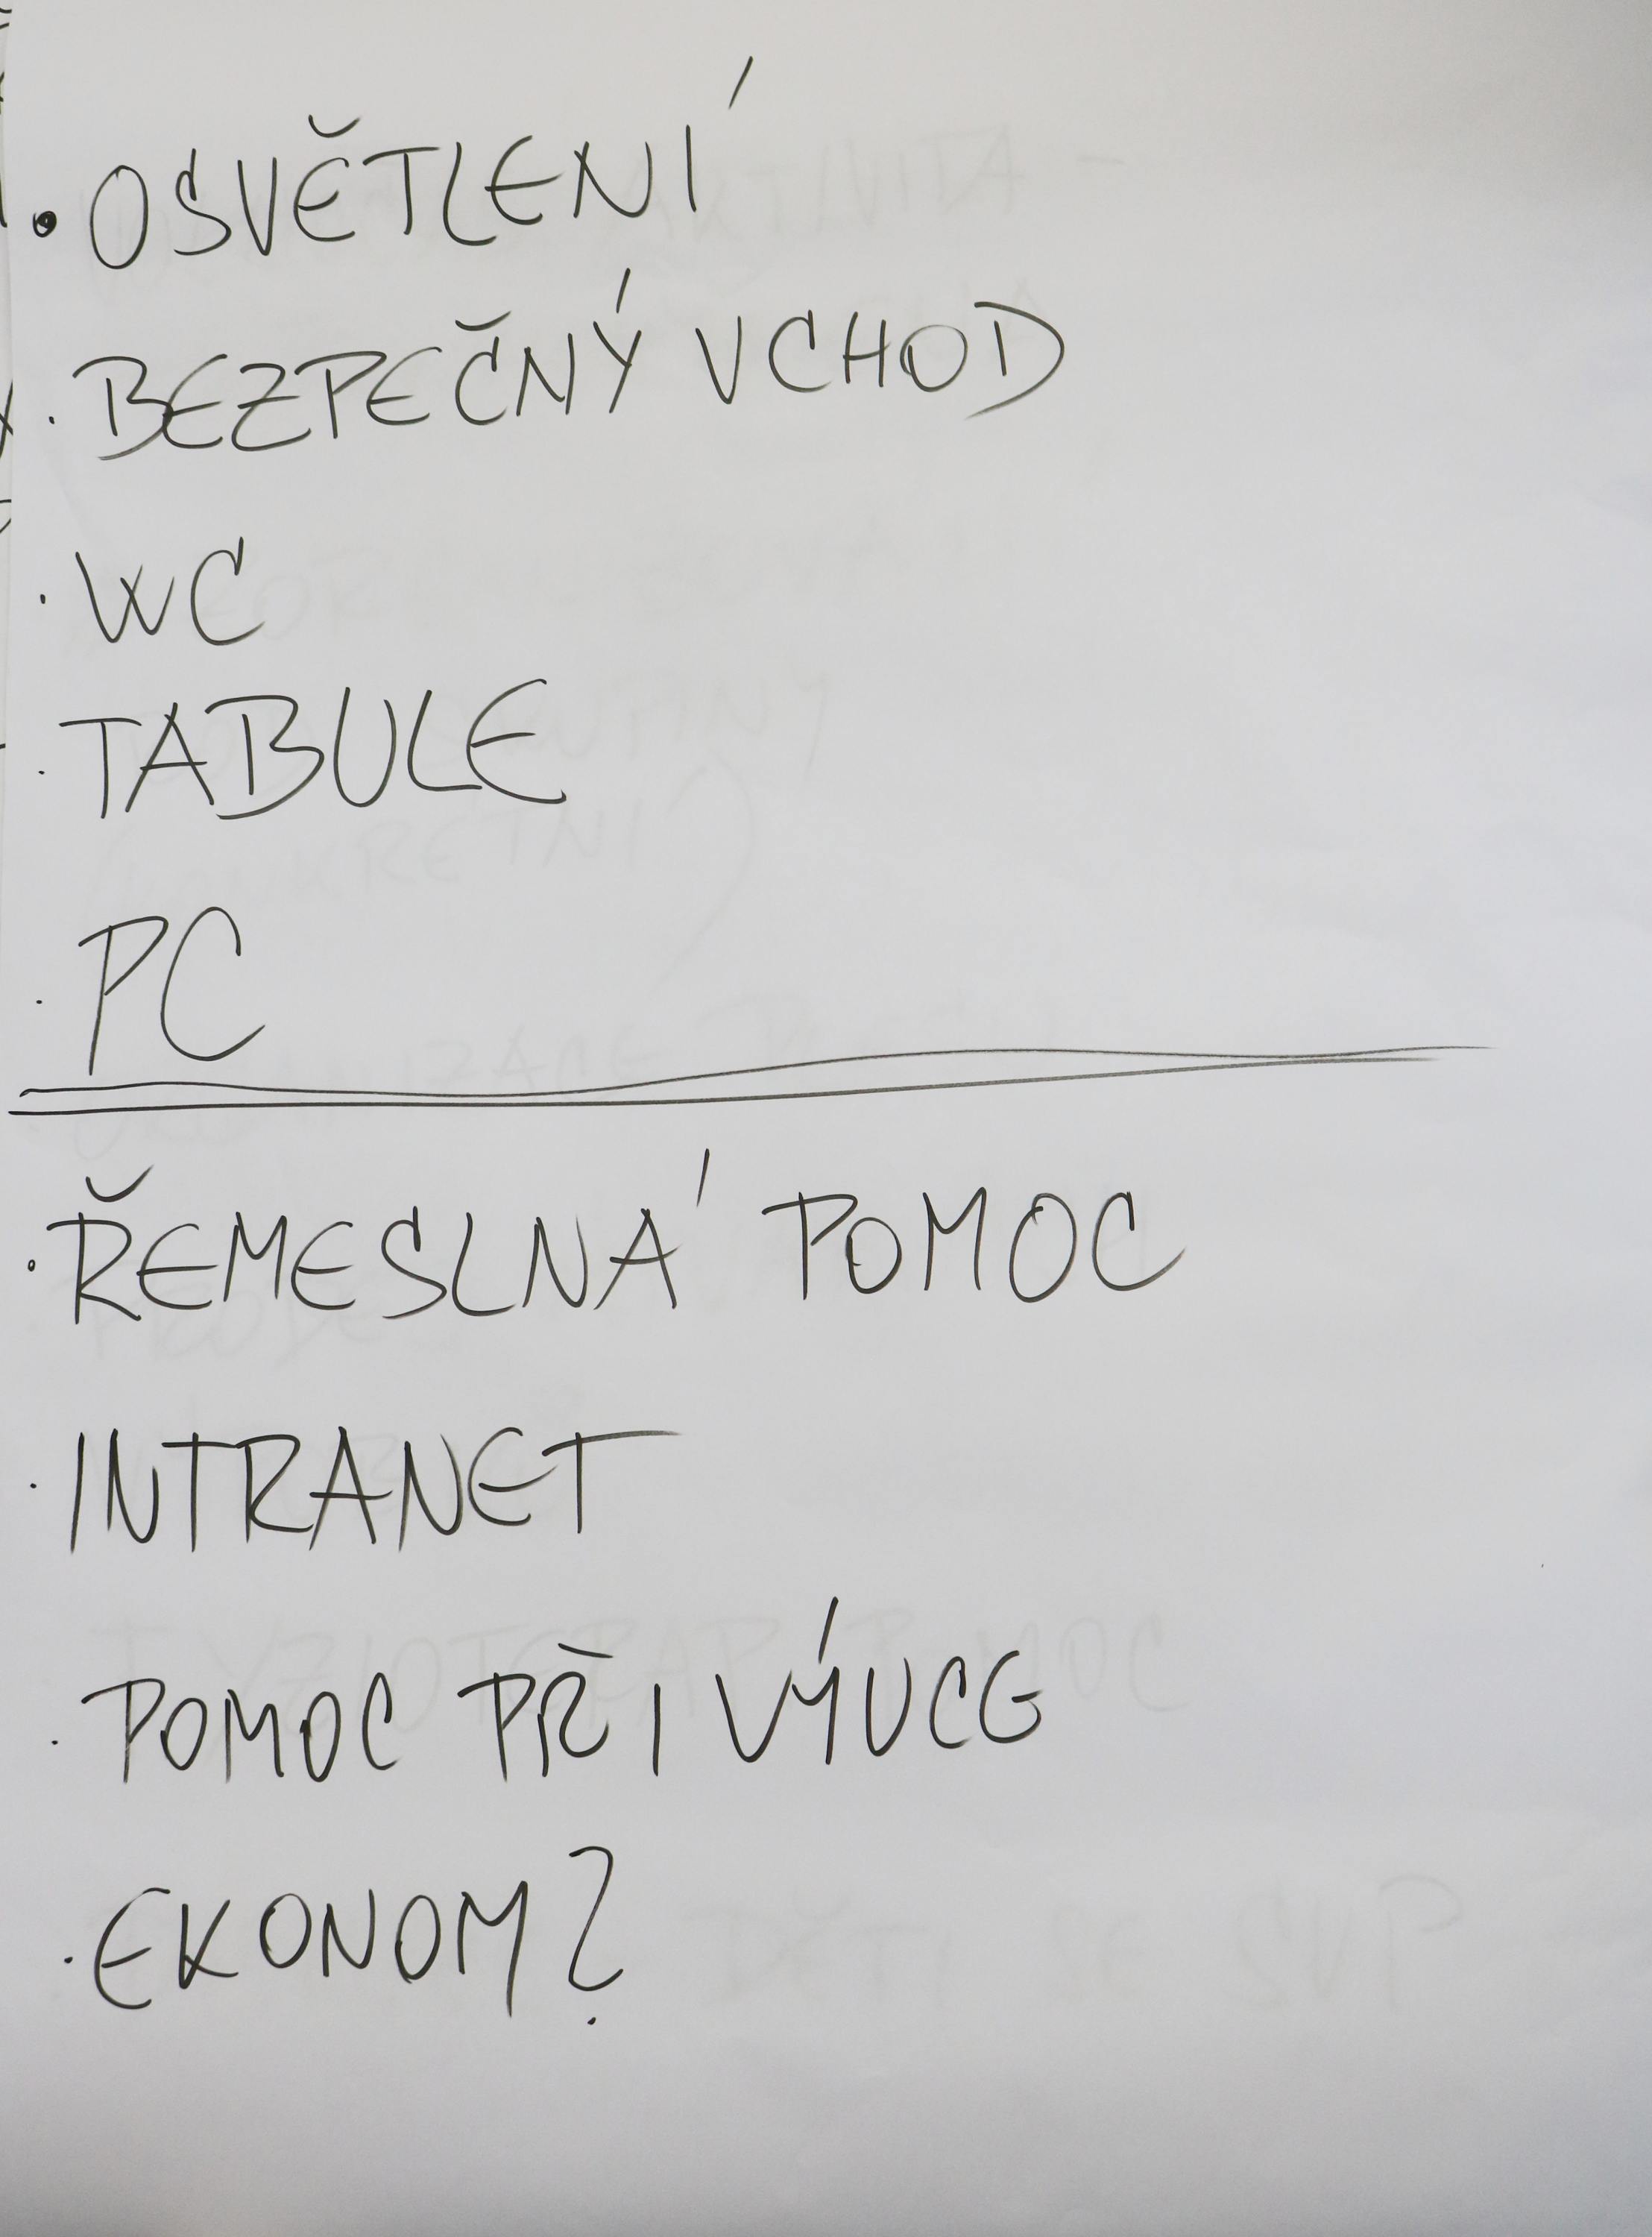 • OSVĚTLENÍ
· BEZPEČNÝ VCHOD
· WC
· TABULE
· PC
· ŘEMESLNÁ POMOC
· INTRANET
· POMOC PŘI VÝUCE
· EKONOM?